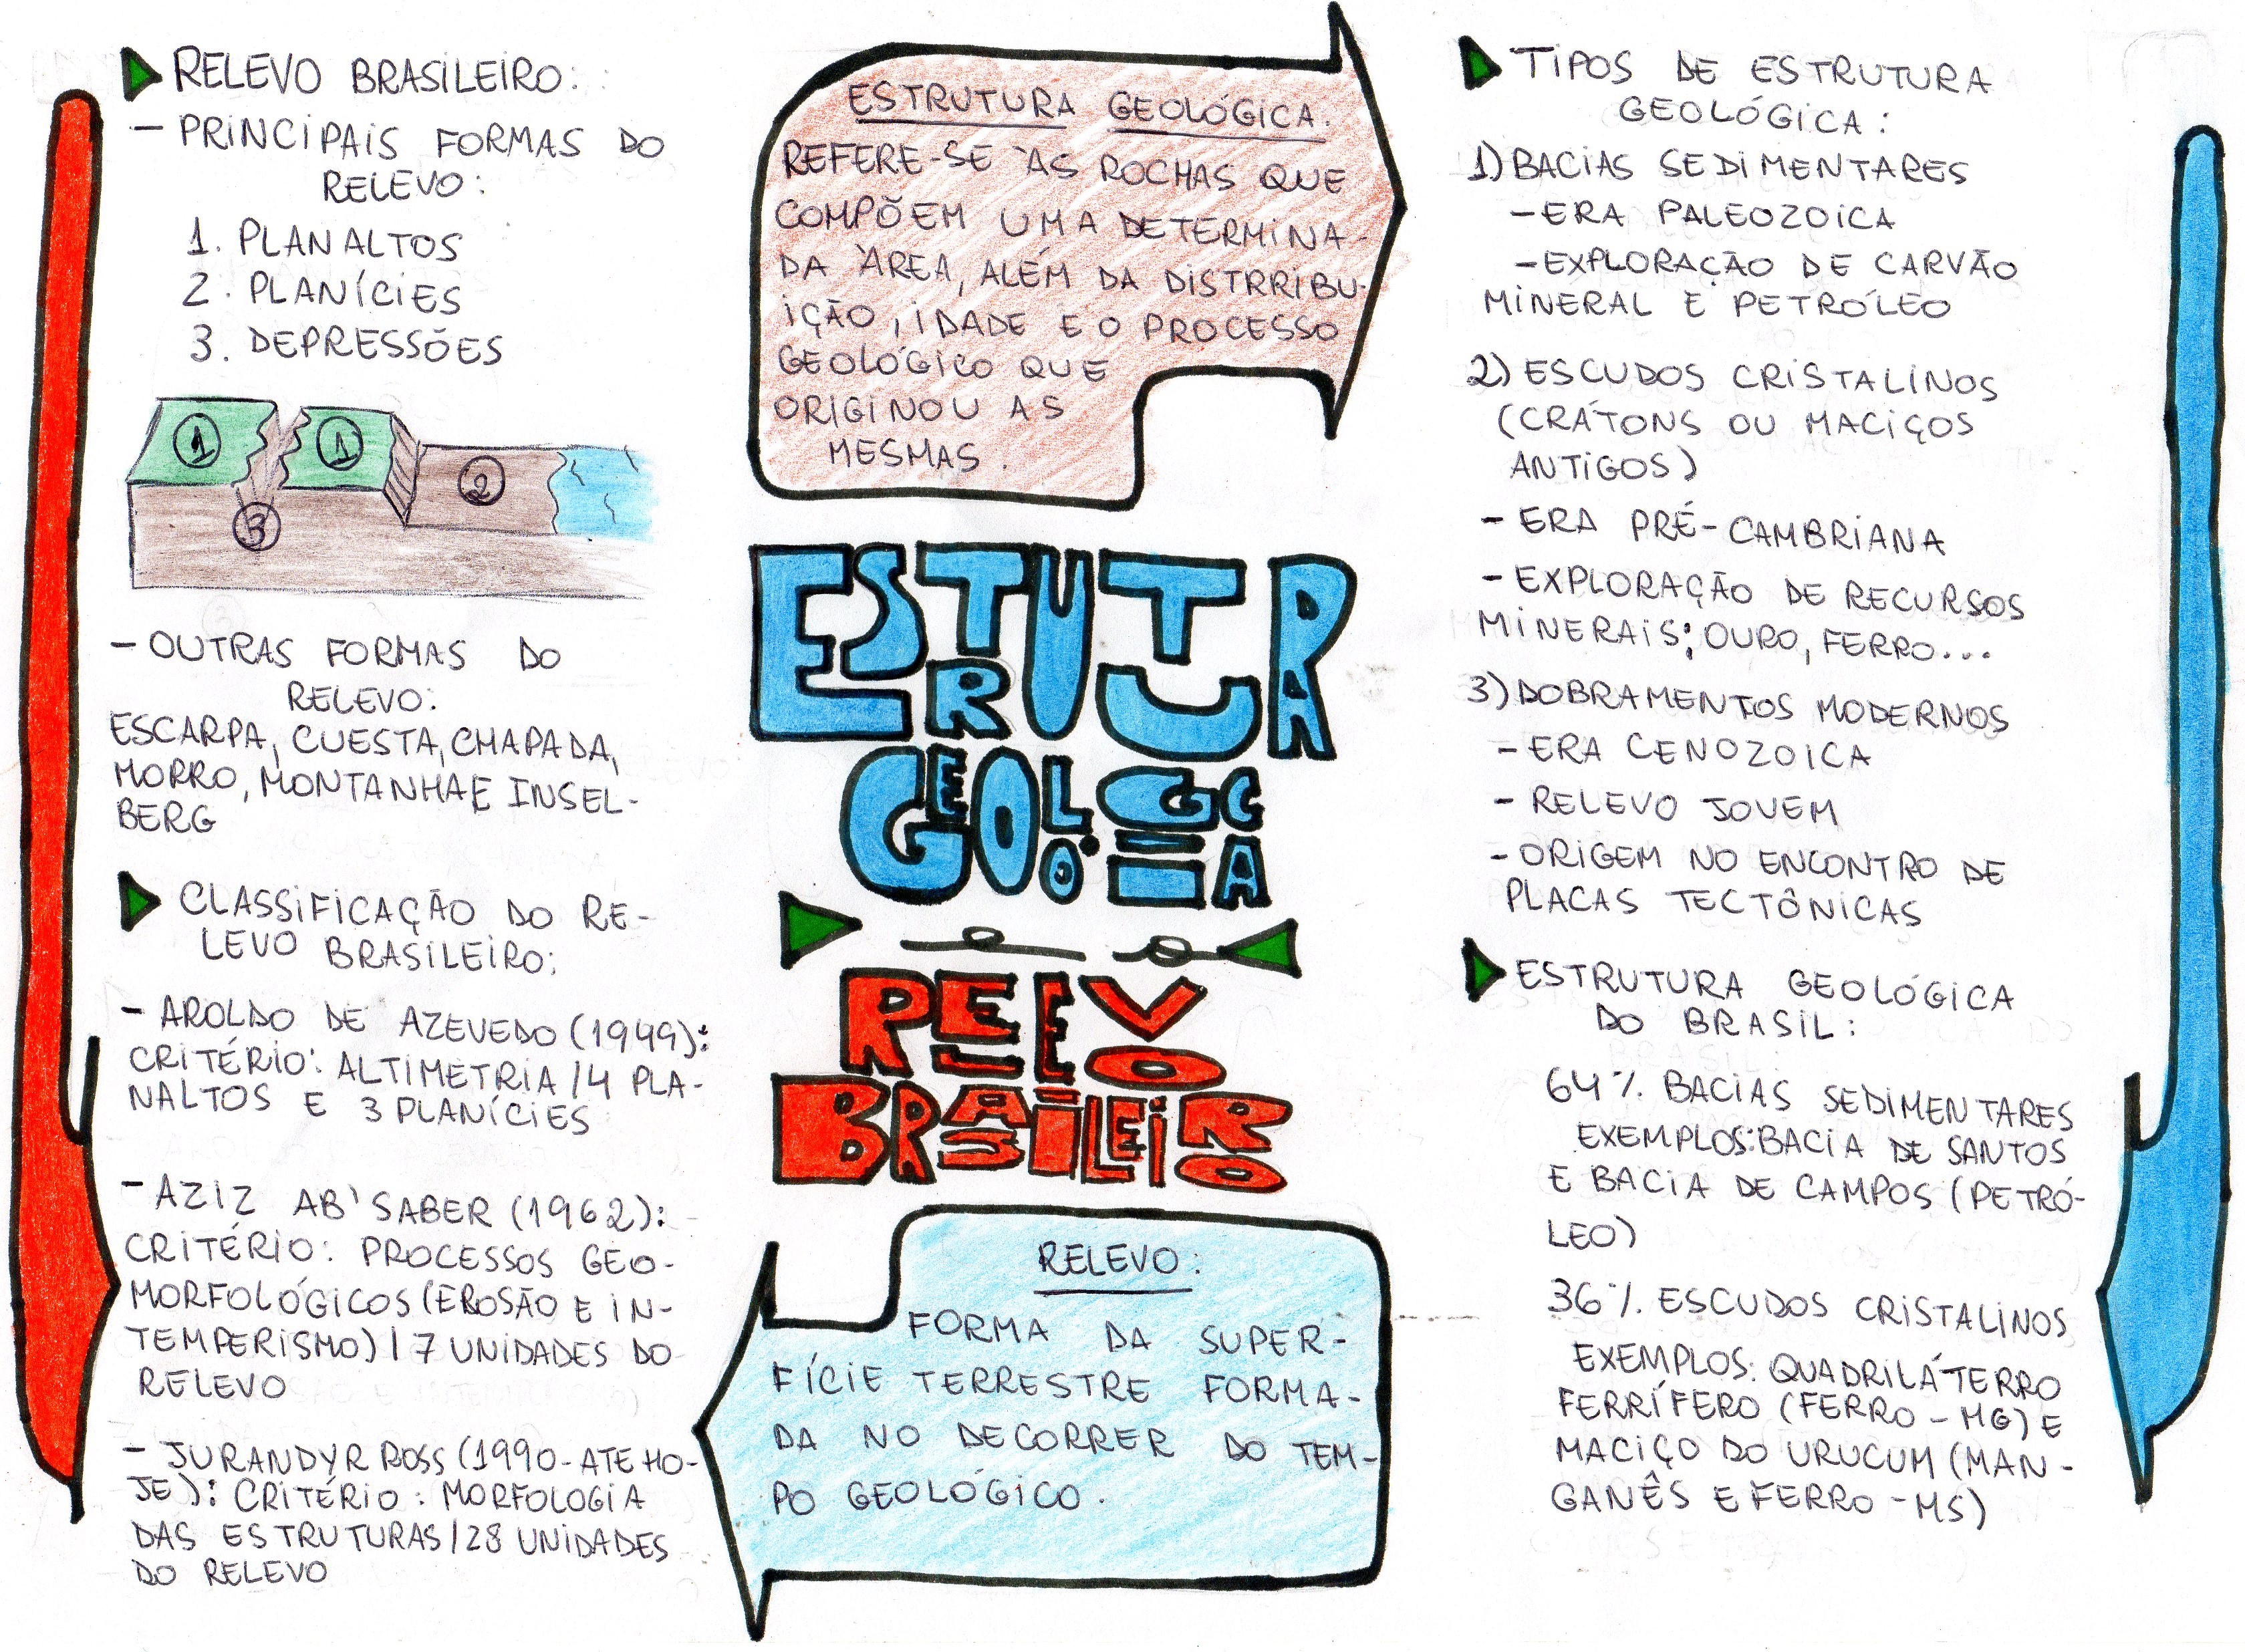 RELEVO BRASILEIRO:
- PRINCIPAIS FORMAS DO
RELEVO:
1. PLANALTOS
2. PLANÍCIES
3. DEPRESSÕES
1
1
2
3
- OUTRAS FORMAS DO
RELEVO:
ESCARPA, CUESTA, CHAPADA,
MORRO, MONTANHA E INSEL-
BERG
CLASSIFICAÇÃO DO RE-
LEVO BRASILEIRO:
- AROLDO DE AZEVEDO (1949):
CRITÉRIO: ALTIMETRIA / 4 PLA-
NALTOS E 3 PLANÍCIES
- AZIZ AB'SABER (1962):
CRITÉRIO: PROCESSOS GEO-
MORFOLÓGICOS (EROSÃO E IN-
TEMPERISMO) / 7 UNIDADES DO
RELEVO
- JURANDYR ROSS (1990 - ATE HO-
JE): CRITÉRIO: MORFOLOGIA
DAS ESTRUTURAS / 28 UNIDADES
DO RELEVO
ESTRUTURA GEOLÓGICA.
REFERE-SE ÀS ROCHAS QUE
COMPÕEM UMA DETERMINA-
DA ÀREA, ALÉM DA DISTRRIBU-
IÇÃO, IDADE E O PROCESSO
GEOLÓGICO QUE
ORIGINOU AS
MESMAS.
ESTRUTURA
GEOLÓGICA
RELEVO
BRASILEIRO
RELEVO:
FORMA DA SUPER-
FÍCIE TERRESTRE FORMA-
DA NO DECORRER DO TEM-
PO GEOLÓGICO.
TIPOS DE ESTRUTURA
GEOLÓGICA:
1) BACIAS SEDIMENTARES
- ERA PALEOZOICA
- EXPLORAÇÃO DE CARVÃO
MINERAL E PETRÓLEO
2) ESCUDOS CRISTALINOS
(CRÁTONS OU MACIÇOS
ANTIGOS)
- ERA PRÉ-CAMBRIANA
- EXPLORAÇÃO DE RECURSOS
MINERAIS; OURO, FERRO...
3) DOBRAMENTOS MODERNOS
- ERA CENOZOICA
- RELEVO JOVEM
- ORIGEM NO ENCONTRO DE
PLACAS TECTÔNICAS
ESTRUTURA GEOLÓGICA
DO BRASIL:
64% BACIAS SEDIMENTARES
EXEMPLOS: BACIA DE SANTOS
E BACIA DE CAMPOS (PETRÓ-
LEO)
36% ESCUDOS CRISTALINOS
EXEMPLOS: QUADRILÁTERRO
FERRÍFERO (FERRO - MG) E
MACIÇO DO URUCUM (MAN-
GANÊS E FERRO - MS)